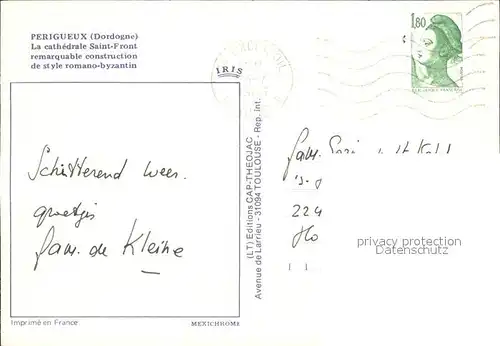 PERIGUEUX (Dordogne)
La cathédrale Saint-Front
remarquable construction
de style romano-byzantin
IRIS
1,80
Schitterend weer.
groetjes
fam. de Kleine
(LT) Editions CAP-THEOJAC
Avenue de Larrieu - 31094 TOULOUSE - Rep. Int.
fam.
224
Ho
privacy protection
Datenschutz
Imprimé en France
MEXICHROME